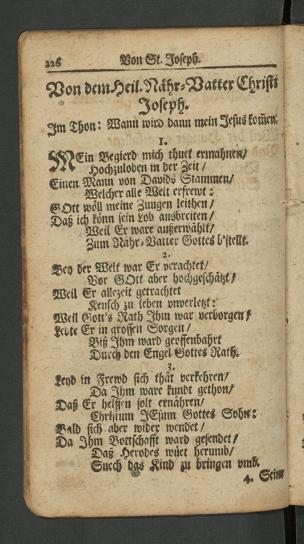 226 Von St. Joseph.
Von dem Heil. Nähr-Vatter Christi
Joseph.
Im Thon: Wann wird dann mein Jesus kom̄en.
1.
MEin Begierd mich thuet ermahnen/
Hochzuloben in der Zeit/
Einen Mann von Davids Stammen/
Welcher alle Welt erfrewt:
GOtt wöll meine Zungen leithen/
Daß ich könn sein Lob außbreiten/
Weil Er ware außerwählt/
Zum Nähr-Vatter Gottes b'stellt.
2.
Bey der Welt war Er verachtet/
Vor GOtt aber hochgeschätzt/
Weil Er allezeit getrachtet
Keusch zu leben unverletzt:
Weil Gott's Rath Ihm war verborgen/
Lebte Er in grossen Sorgen/
Biß Ihm ward geoffenbahrt
Durch den Engel Gottes Rath.
3.
Leyd in Frewd sich thät verkehren/
Da Ihm ware kundt gethon/
Daß Er helffen solt ernähren/
Christum JEsum Gottes Sohn:
Bald sich aber wider wendet/
Da Ihm Bottschafft ward gesendet/
Daß Herodes wüet herumb/
Suech das Kind zu bringen umb.
4. Seine